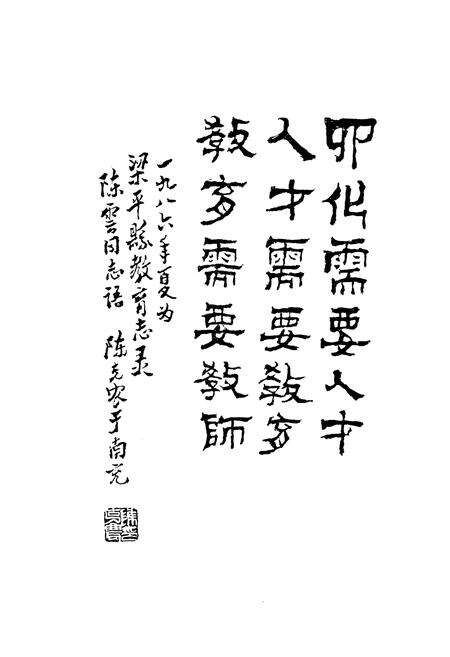 四化需要人才
人才需要教育
教育需要教師
一九八六年夏为
梁平縣教育志录
陈雲同志语 陈克农于南充